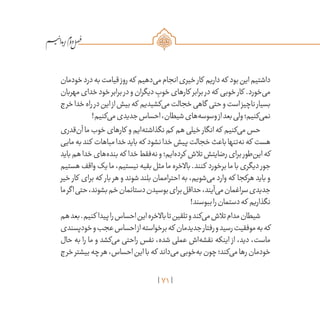 داشتیم این بود که داریم کار خیری انجام می‌دهیم که روز قیامت به درد خودمان
می‌خورد. کار خوبی که در برابر کارهای خوب دیگران و در برابر خود خدای مهربان
بسیار ناچیز است و حتی گاهی خجالت می‌کشیدیم که بیش از این در راه خدا خرج
نمی‌کنیم؛ ولی بعد از وسوسه‌های شیطان، احساس جدیدی می‌کنیم!
حس می‌کنیم که انگار خیلی هم کم نگذاشته‌ایم و کارهای خوب ما آن‌قدری
هست که نه‌تنها باعث خجالت پیش خدا نشود که باید خدا مباهات کند به مایی
که این‌طور برای رضایتش تلاش کرده‌ایم؛ و نه‌فقط خدا که بنده‌های خدا هم باید
جور دیگری با ما برخورد کنند. بالاخره ما مثل بقیه نیستیم، ما یک واقف هستیم
و باید هرکجا که وارد می‌شویم، به احتراممان بلند شوند و هر بار که برای کار خیر
جدیدی سراغمان می‌آیند، حداقل برای بوسیدن دستانمان خم بشوند، حتی اگر ما
نگذاریم که دستمان را ببوسند!
شیطان مدام تلاش می‌کند و تلقین تا بالاخره این احساس را پیدا کنیم. بعد هم
که به موفقیت رسید و رفتار جدیدمان که برخواسته از احساس عجب و خودپسندی
ماست، دید، از اینکه نقشه‌اش عملی شده، نفس راحتی می‌کشد و ما را به حال
خودمان رها می‌کند؛ چون به‌خوبی می‌داند که با این احساس، هر چه بیشتر خرج
| ۷۱ |